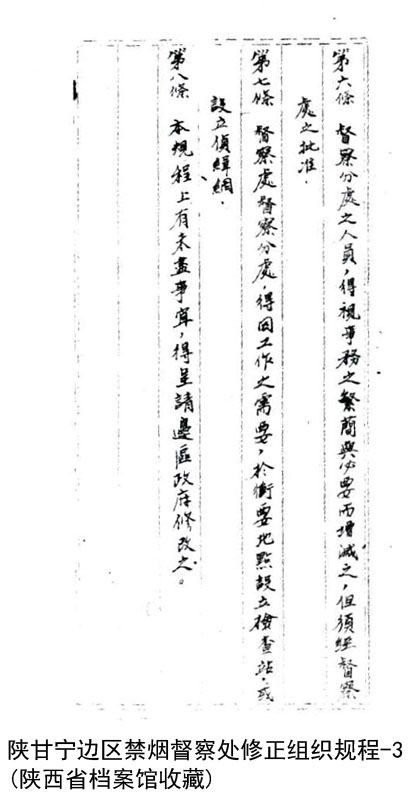 第六條　督察分處之人員，得視事務之繁簡與必要而增減之，但須經督察
處之批准．
第七條　督察處督察分處，得因工作之需要，於衝要地點設立檢查站．或
設立偵緝網．
第八條　本規程上有未盡事宜，得呈請邊區政府修改之。
陕甘宁边区禁烟督察处修正组织规程-3
(陕西省档案馆收藏)